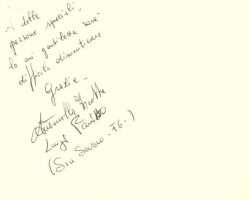 A dette
persone speciali.
la cui gentilezza sarà
difficile dimenticare
Grazie -
Antonella
Luigi
(San Severo - FG -)